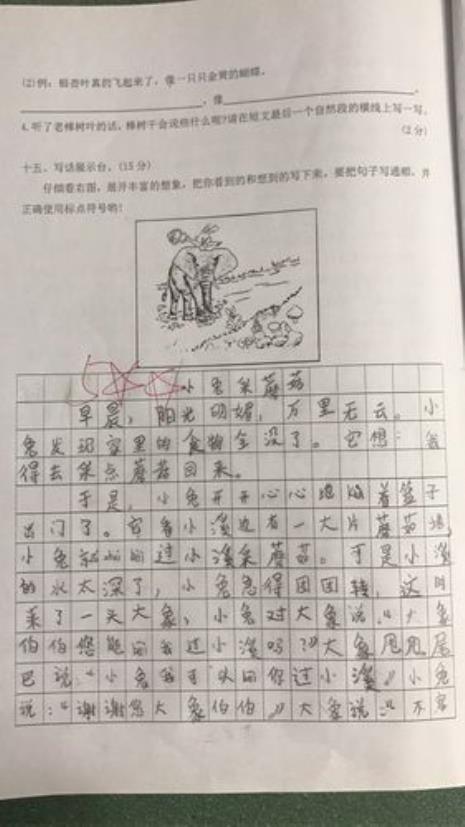 (2)例：银杏叶真的飞起来了，像一只只金黄的蝴蝶。
，像 。
4.听了老樟树叶的话，樟树千会说些什么呢？请在短文最后一个自然段的横线上写一写。
(2分)
十五、写话展示台。(15分)
仔细看右图，展开丰富的想象，把你看到的和想到的写下来，要把句子写通顺，并
正确使用标点符号哟！
小兔采蘑菇
早晨，阳光明媚，万里无云。小
兔发现家里的食物全没了。它想：我
得去采点蘑菇回来。
于是，小兔开开心心地挎着篮子
出门了。它看小溪边有一大片蘑菇地，
小兔 过小溪采蘑菇。可是小溪
的水太深了，小兔急得团团转，这时
来了一头大象，小兔对大象说：“大象
伯伯您能 我过小溪吗？”大象甩甩尾
巴说：“小兔我可以 你过小溪”小兔
说：“谢谢您大象伯伯”大象说：“不客